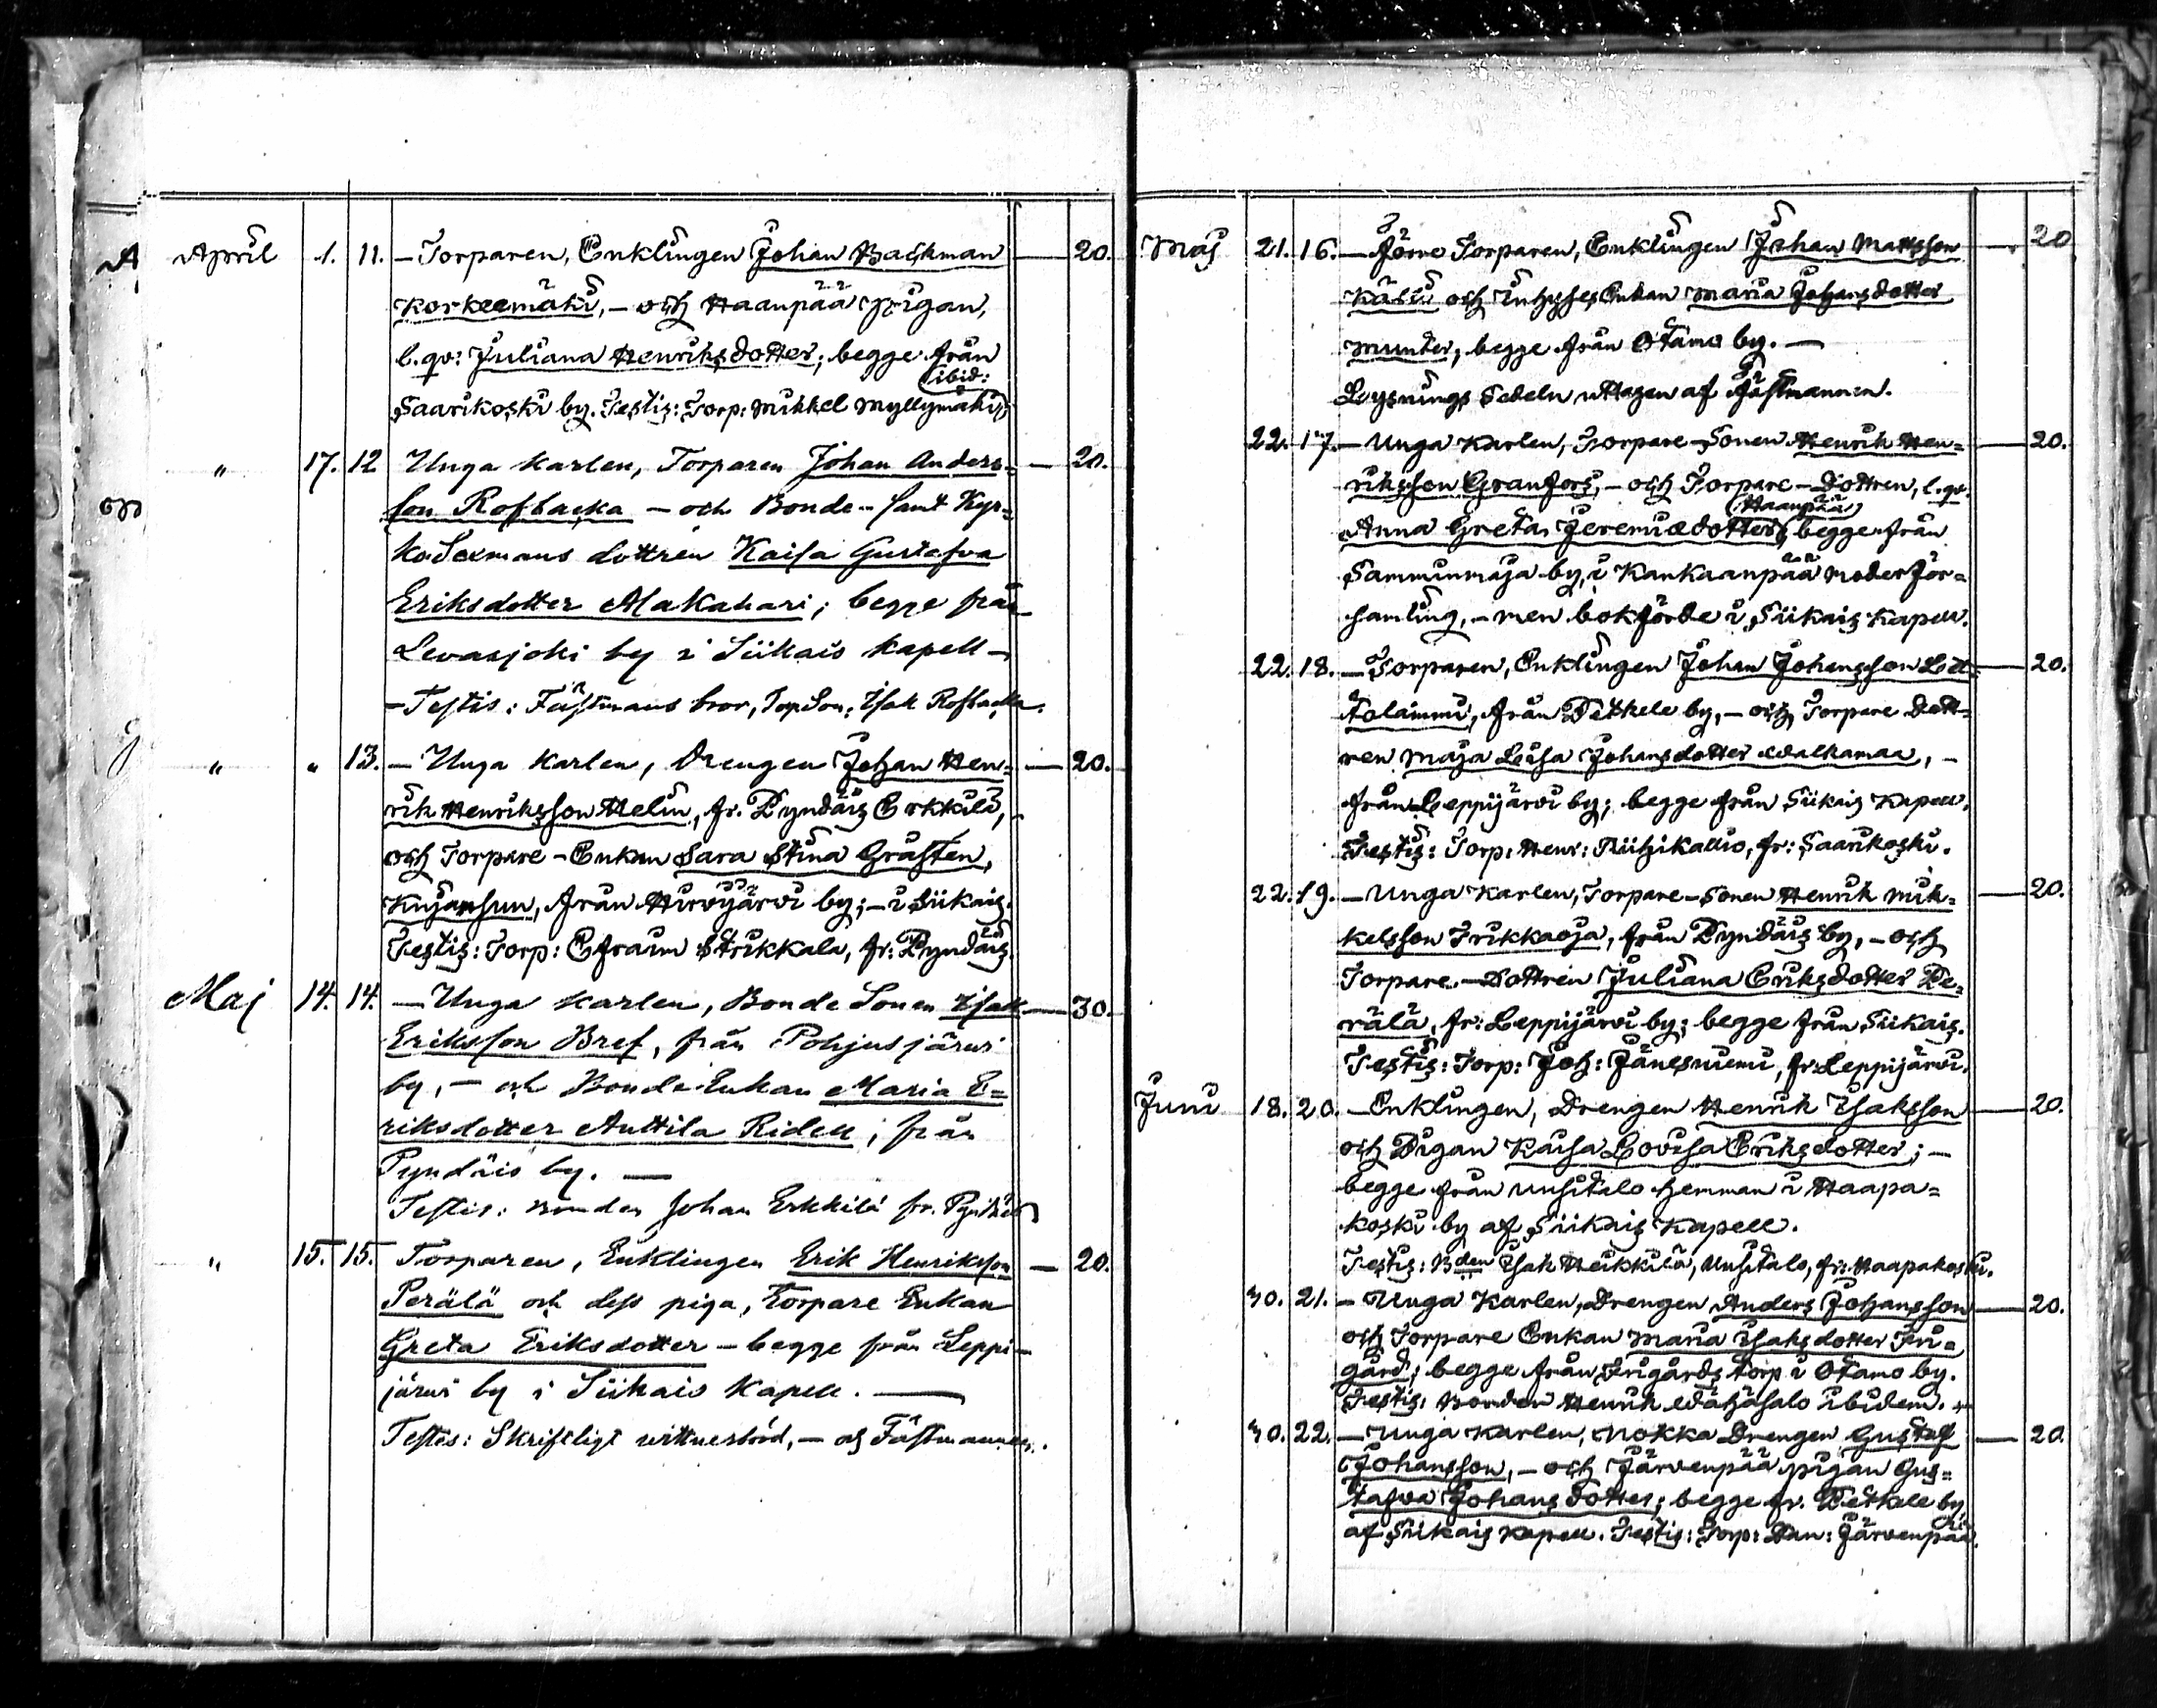 April 1. 11. — Torparen, Enklingen Johan Backman — 20.
Korkeemäki, — och Haanpää pigan,
l. qv: Juliana Henriksdotter; begge från
(ibid:
Saarikoski by. Testis: Torp: Mikkel Myllymäki)
" 17. 12 Unga Karlen, Torparen Johan Anders= — 20.
son Rosbacka — och Bonde- samt Kyr=
kosexmans dottren Kaisa Gustafva
Eriksdotter Alakahari; begge från
Levasjoki by i Siikais kapell —
— Testis: Fästmans bror, Torp Son, Isak Rosbacka.
" " 13. — Unga Karlen, Drengen Johan Hen= — 20.
rik Henriksson Helin, fr. Pyndäis Erkkilä,
och Torpare-Enkan Sara Stina Gråsten,
Kujansuu, från Hirvijärvi by; — i Siikais.
Testis: Torp: Efraim Strikkala, fr: Pyndäis.
Maj 14. 14. — Unga Karlen, Bonde Sonen Isak — 30.
Eriksson Bref, från Pohjusjärvi
by, — och Bonde Enkan Maria E=
riksdotter Anttila Ridell; från
Pyndäis by. —
Testis: Bonden Johan Erkkilä fr. Pyndäis
" 15. 15. Torparen, Enklingen Erik Henriksson — 20.
Perälä och dess piga, Torpare Enkan
Greta Eriksdotter — begge från Leppi-
järvi by i Siikais Kapell. —
Testis: Skriftligt wittnesbörd, — af Fästmannen.
Maj 21. 16. — Förre Torparen, Enklingen Johan Mattsson — 20
och Inhyses Enkan Maria Johansdotter
Munter, begge från Otamo by. —
Lysnings Sedeln uttagen af Fästmannen.
22. 17. — Unga Karlen, Torpare-Sonen Henrik Hen= — 20.
riksson Granfors, — och Torpare-Dottren, l. qv.
(Haanpää)
Anna Greta Jeremiædotter, begge från
Samminmaja by, i Kankaanpää moderför=
samling, — men bokförde i Siikais Kapell.
22. 18. — Torparen, Enklingen Johan Johansson Lat= — 20.
tolammi, från Petkele by, — och Torpare Dott=
ren Maja Lisa Johansdotter Walkamaa, —
från Leppijärvi by; begge från Siikais Kapell.
Testis: Torp: Henr: Riihikallio, fr: Saarikoski.
22. 19. — Unga Karlen, Torpare-Sonen Henrik Mik= — 20.
kelsson Trikkaoja, från Pyndäis by, — och
Torpare-Dottren Juliana Eriksdotter Pe=
rälä, fr: Leppijärvi by; begge från Siikais.
Testis: Torp: Joh: Jänesniemi, fr: Leppijärvi.
Juni 18. 20. — Enklingen, Drengen Henrik Isaksson — 20.
och Pigan Kaisa Lovisa Eriksdotter; —
begge från Uusitalo hemman i Haapa=
koski by af Siikais Kapell.
Testis: Bden Isak Heikkilä, Uusitalo, fr: Haapakoski.
30. 21. — Unga Karlen, Drengen Anders Johansson — 20.
och Torpare Enkan Maria Isaksdotter Fri=
gård; begge från Frigårds torp i Otamo by.
Testis: Bonden Henrik Wähäsalo ibidem.
30. 22. — Unga Karlen, Nokka Drengen Gustaf — 20.
Johansson, — och Järvenpää pigan Gus=
tafva Johansdotter; begge fr. Petkele by
af Siikais Kapell. Testis: Torp: Dan: Järvenpää.